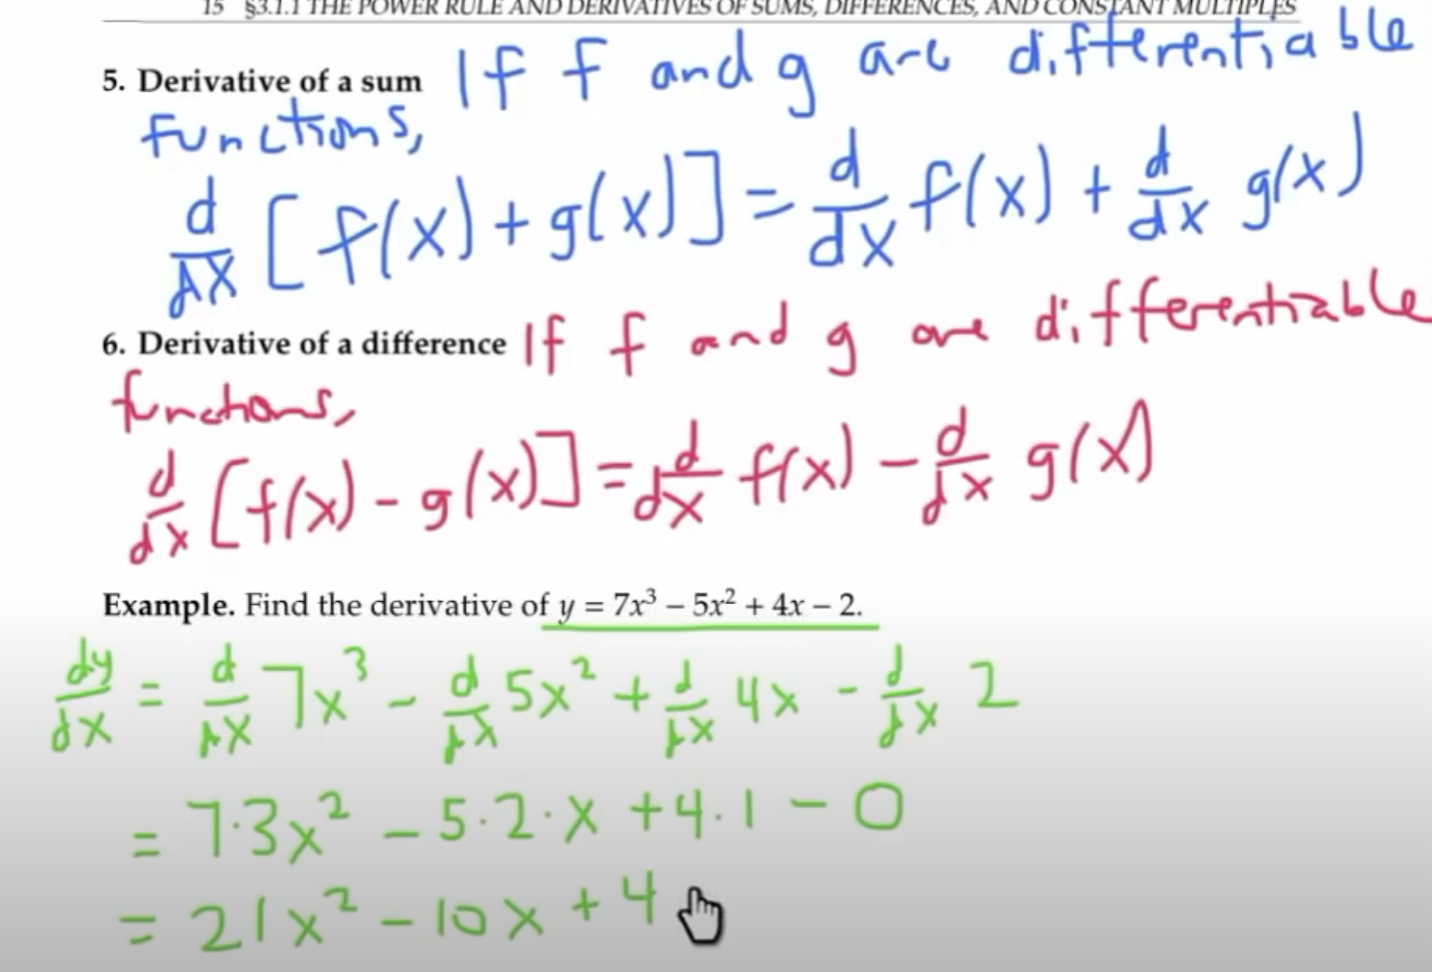 15 §3.1.1 THE POWER RULE AND DERIVATIVES OF SUMS, DIFFERENCES, AND CONSTANT MULTIPLES
5. Derivative of a sum If f and g are differentiable
functions,
d/dx [f(x) + g(x)] = d/dx f(x) + d/dx g(x)
6. Derivative of a difference If f and g are differentiable
functions,
d/dx [f(x) - g(x)] = d/dx f(x) - d/dx g(x)
Example. Find the derivative of y = 7x³ − 5x² + 4x − 2.
dy/dx = d/dx 7x³ - d/dx 5x² + d/dx 4x - d/dx 2
= 7·3x² - 5·2·x + 4·1 - 0
= 21x² - 10x + 4